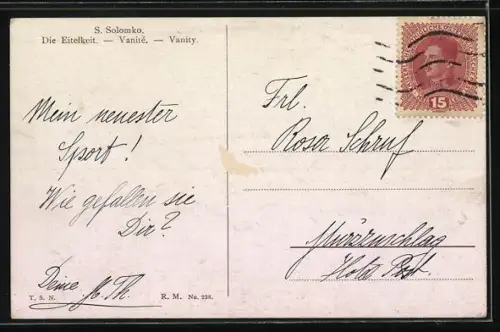 S. Solomko.
Die Eitelkeit. — Vanité. — Vanity.
Mein neuester
Sport!
Wie gefallen sie
Dir?
Deine M. Th.
T. S. N.
R. M. No. 238.
15
Frl.
Rosa Schruf
Mürzzuschlag
Hotel Post.